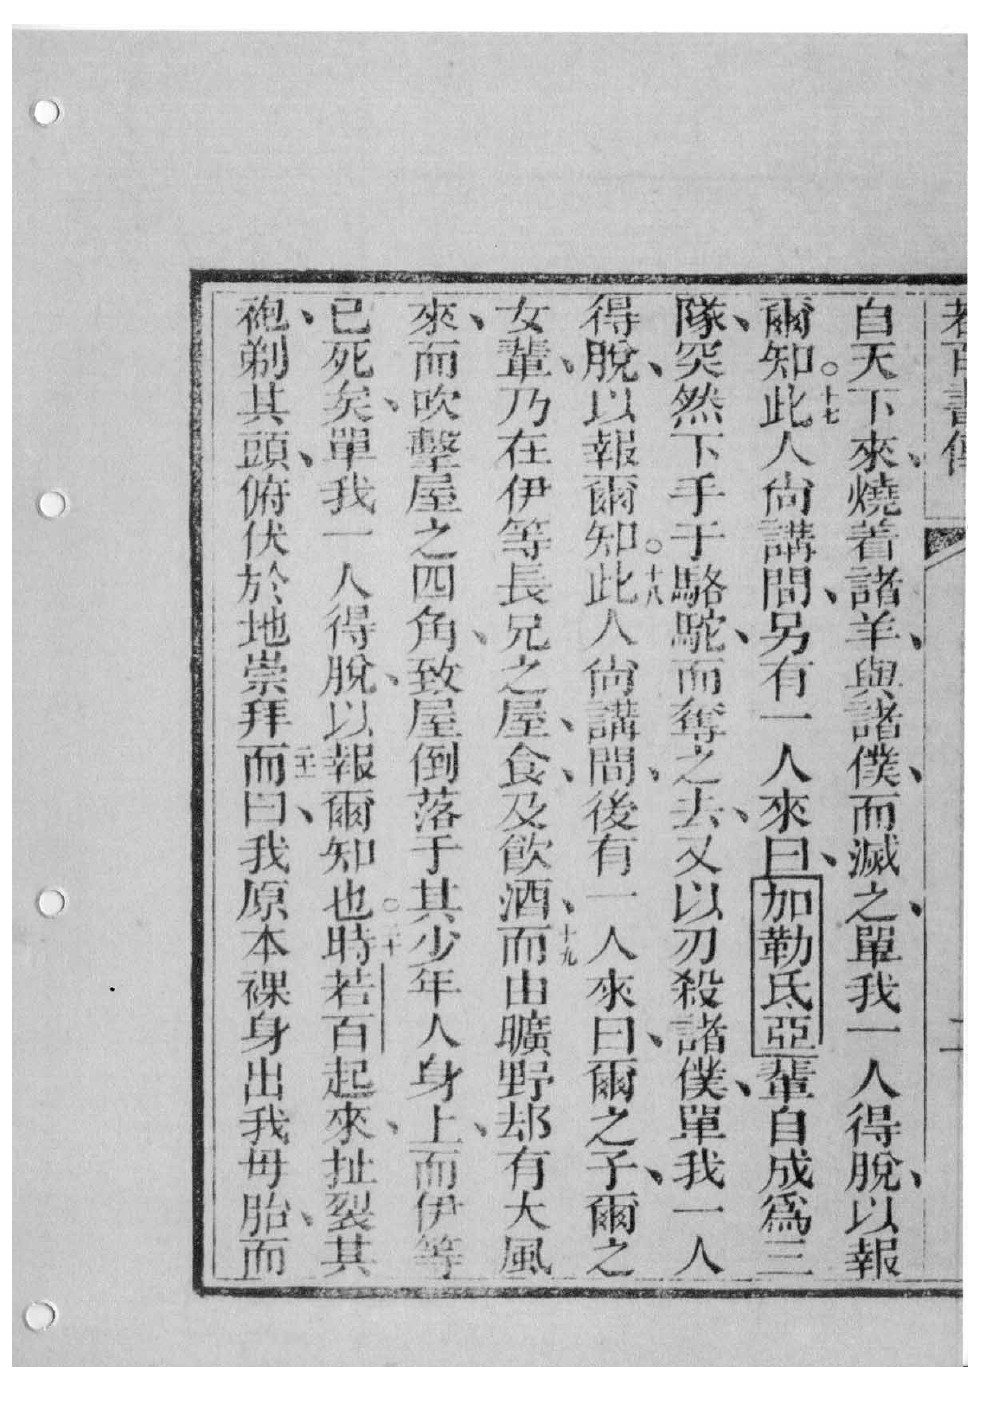 若百書傳
二
自天下來、燒着諸羊、與諸僕、而滅之、單我一人得脫、以報
爾知。○十七此人尙講間、另有一人來曰、加勒氐亞輩自成爲三
隊、突然下手于駱駝、而奪之去、又以刃殺諸僕、單我一人
得脫、以報爾知。○十八此人尙講間、後有一人來曰、爾之子、爾之
女輩、乃在伊等長兄之屋、食、及飲酒、十九而由曠野却有大風
來、而吹擊屋之四角、致屋倒落于其少年人身上、而伊等
已死矣、單我一人得脫、以報爾知也。○二十時若百起來、扯裂其
袍、剃其頭、俯伏於地崇拜、二十一而曰、我原本裸身出我母胎、而